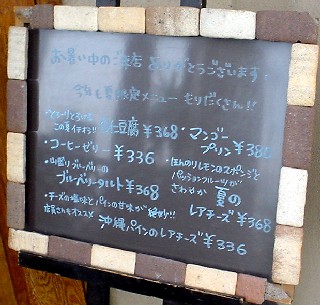 お暑い中のご来店 ありがとうございます。
今年も夏限定メニュー もりだくさん!!
この夏イチオシ!! 豆腐 ¥368
・マンゴー
プリン ¥380
・コーヒーゼリー ¥336
・山盛りブルーベリーの
ブルーベリータルト ¥368
・はちみつレモンのスポンジと
パッションフルーツが
さわやか 夏の
レアチーズ ¥368
・チーズの塩味とパインの甘味が 絶妙!!
店長さんもオススメ 沖縄パインのレアチーズ ¥336